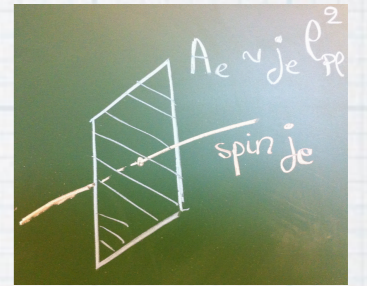 A_e ~ j_e l_Pl^2
spin j_e